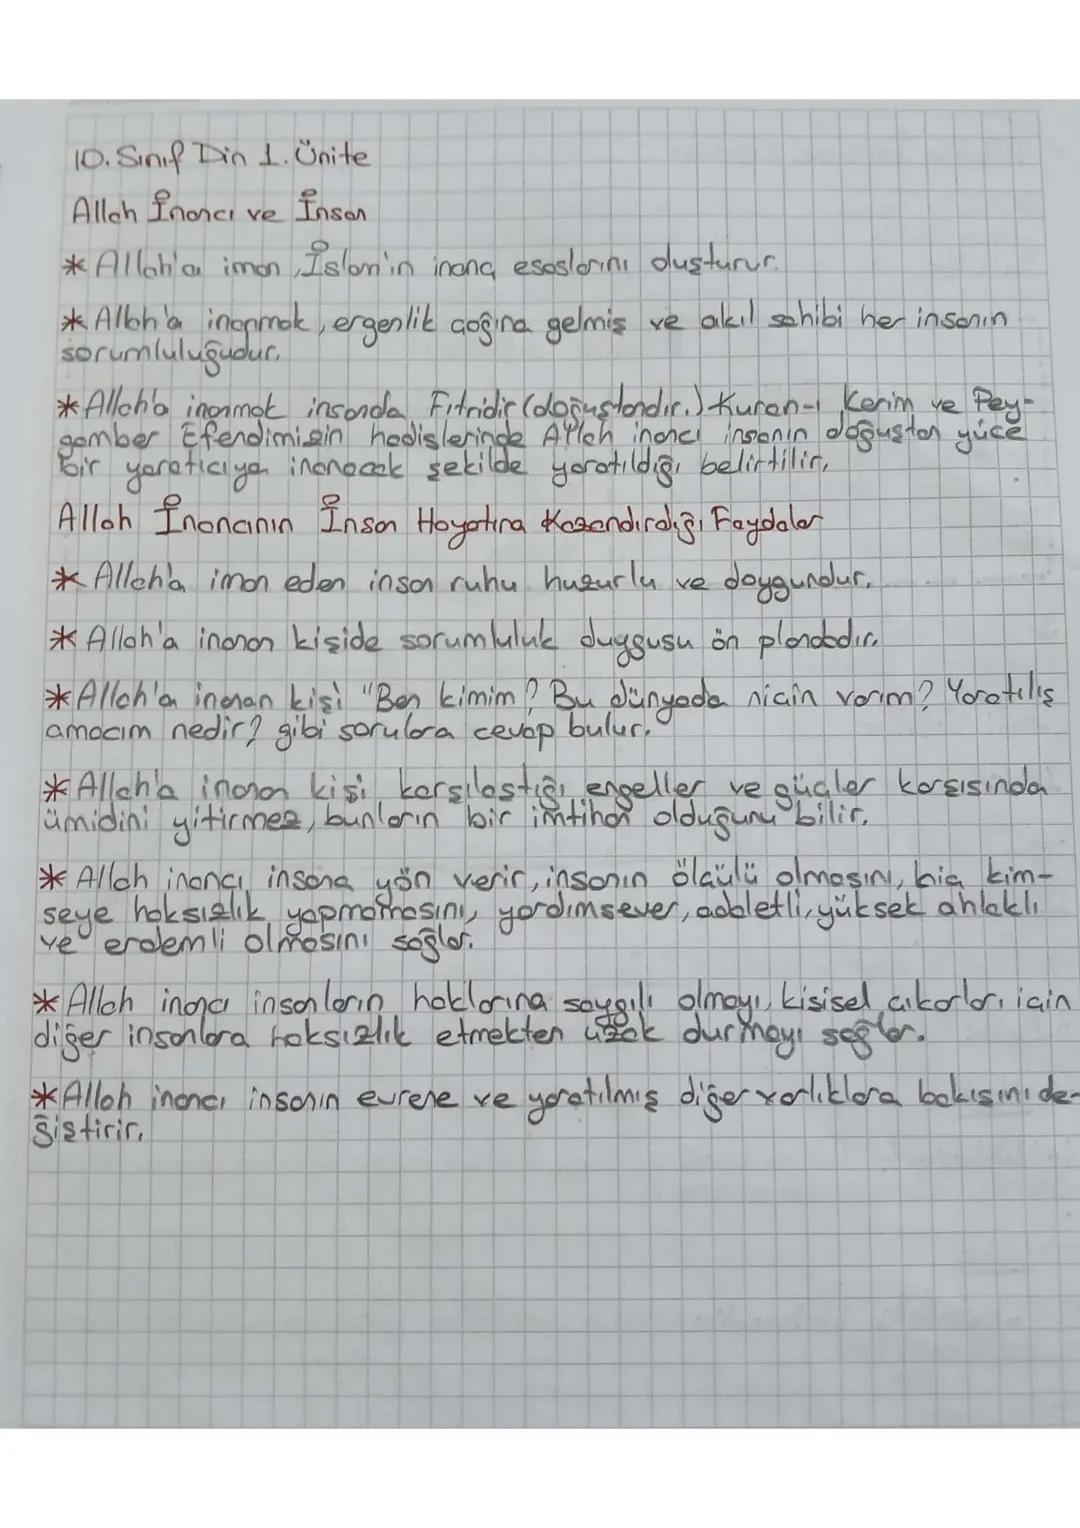 10. Sınıf Din 1. Ünite
Allah İnancı ve İnsan
* Allah'a iman, İslam'ın inanç esaslarını oluşturur.
* Allah'a inanmak, ergenlik çağına gelmiş ve akıl sahibi her insanın
sorumluluğudur.
* Allah'a inanmak insanda Fıtridir (doğuştandır.) Kuran-ı Kerim ve Pey-
gamber Efendimizin hadislerinde Allah inancı insanın doğuştan yüce
bir yaratıcıya inanacak şekilde yaratıldığı belirtilir.
Allah İnancının İnsan Hayatına Kazandırdığı Faydalar
* Allah'a iman eden insan ruhu huzurlu ve doygundur.
* Allah'a inanan kişide sorumluluk duygusu ön plandadır.
* Allah'a inanan kişi "Ben kimim? Bu dünyada niçin varım? Yaratılış
amacım nedir? gibi sorulara cevap bulur."
* Allah'a inanan kişi karşılaştığı engeller ve güçler karşısında
ümidini yitirmez, bunların bir imtihan olduğunu bilir.
* Allah inancı, insana yön verir, insanın ölçülü olmasını, hiç kim-
seye haksızlık yapmamasını, yardımsever, adaletli, yüksek ahlaklı
ve erdemli olmasını sağlar.
* Allah inancı insanların haklarına saygılı olmayı, kişisel çıkarları için
diğer insanlara haksızlık etmekten uzak durmayı sağlar.
* Allah inancı insanın evrene ve yaratılmış diğer varlıklara bakışını de-
ğiştirir.